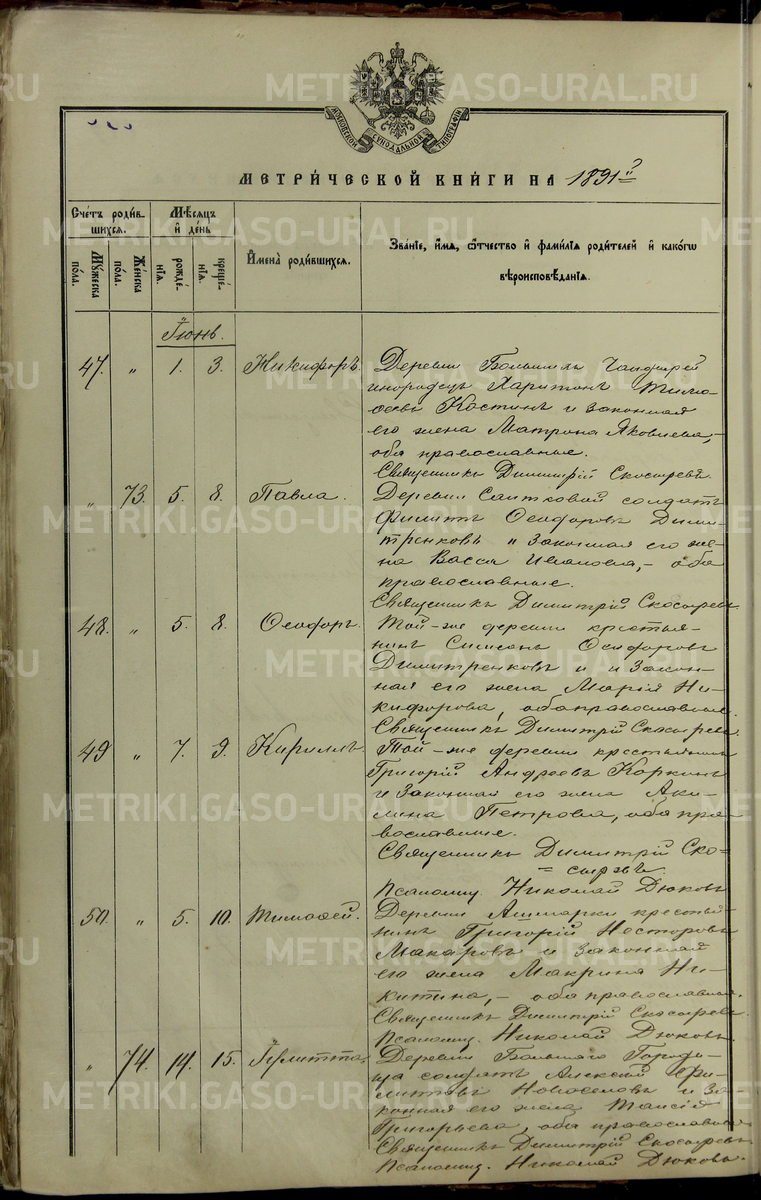 METRIKI.GASO-URAL.RU
МОСКОВСКОЙ СѴНОДАЛЬНОЙ ТИПОГРАФІИ
МЕТРИ́ЧЕСКОЙ КНИ́ГИ НА 1891
Сче́тъ роди́в-
шихся.
Му́жеска по́ла.
Же́нска по́ла.
Мѣ́сяцъ
и де́нь
рожде́-
нія.
креще́-
нія.
Имена̀ роди́вшихся.
Зва́ніе, и́мя, ѻ́тчество и фами́лія роди́телей и како́гѡ
вѣроисповѣ́данія.
Іюнь.
47. " 1. 3. Никифоръ. Деревни Большихъ
инородецъ Харитонъ Тимо-
ѳеевъ Костинъ и законная
его жена Матрона Яковлева,-
оба православные.
Священникъ Димитрій Скосыревъ.
" 73. 5. 8. Павла. Деревни Саитковой солдатъ
Филиппъ Ѳеодоровъ Дими-
тренковъ и законная его же-
на Васса Иванова,- оба
православные.
Священникъ Димитрій Скосыревъ
48. " 5. 8. Ѳеодоръ. Той-же деревни крестья-
нинъ Симеонъ Ѳеодоровъ
Димитренковъ и и закон-
ная его жена Марія Ни-
кифорова, оба православные.
Священникъ Димитрій Скосыревъ.
49 " 7. 9. Кириллъ. Той-же деревни крестьянинъ
Григорій Андреевъ Коркинъ
и законная его жена Аки-
лина Петровна, оба пра-
вославные.
Священникъ Димитрій Ско-
=сыревъ.
Псаломщ. Николай Дюковъ
50. " 5. 10. Тимоѳей. Деревни Ашмарки крестья-
нинъ Григорій Несторовъ
Макаровъ и законная
его жена Макрина Ни-
китина,- оба православные.
Священникъ Димитрій Скосыревъ.
Псаломщ. Николай Дюковъ.
" 74. 14. 15. Іулитта. Деревни Большаго Городи-
ща солдатъ Алексій
Новоселовъ и за-
конная его жена Таисія
Григорьева, оба православные.
Священникъ Димитрій Скосыревъ
Псаломщ. Николай Дюковъ.